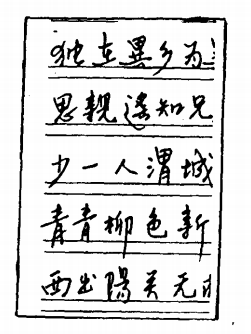 独在異乡为
思親遥知兄
少一人渭城
青青柳色新
西出陽关无